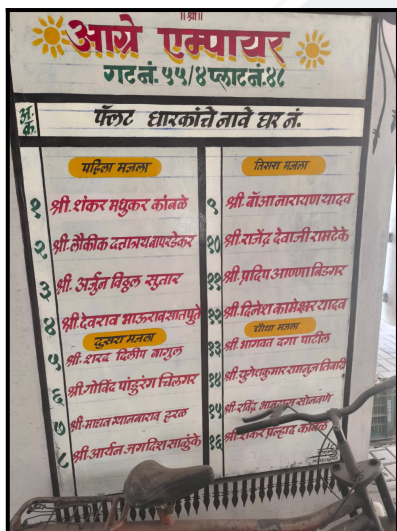 ॥श्री॥
आग्रे एम्पायर
गट नं. ५५/४ प्लाट नं.४८
अ.क्र. फ्लॅट धारकांचे नावे घर नं.
पहिला मजला
१ श्री. शंकर मधुकर कांबळे
२ श्री. लौकीक दत्तात्रय बापरडेकर
३ श्री. अर्जुन विठ्ठल सुतार
४ श्री. देवराव भाऊराव सातपुते
दुसरा मजला
५ श्री. शरद दिलीप बागुल
६ श्री. गोविंद पांडुरंग चिलगर
७ श्री. माधव ग्यानबाराव हरळ
८ श्री. आर्यन जगदिश साळुंके
तिसरा मजला
९ श्री. बॉआ नारायण यादव
१० श्री. राजेंद्र देवाजी रामटेके
११ श्री. प्रदिप आण्णा बिडगर
१२ श्री. दिनेश कामेश्वर यादव
चौथा मजला
१३ श्री. भागवत दगा पाटील
१४ श्री. युगेशकुमार रामनुज तिवारी
१५ श्री. रविंद्र सोनवणे
१६ श्री. शंकर प्रल्हाद कांबळे